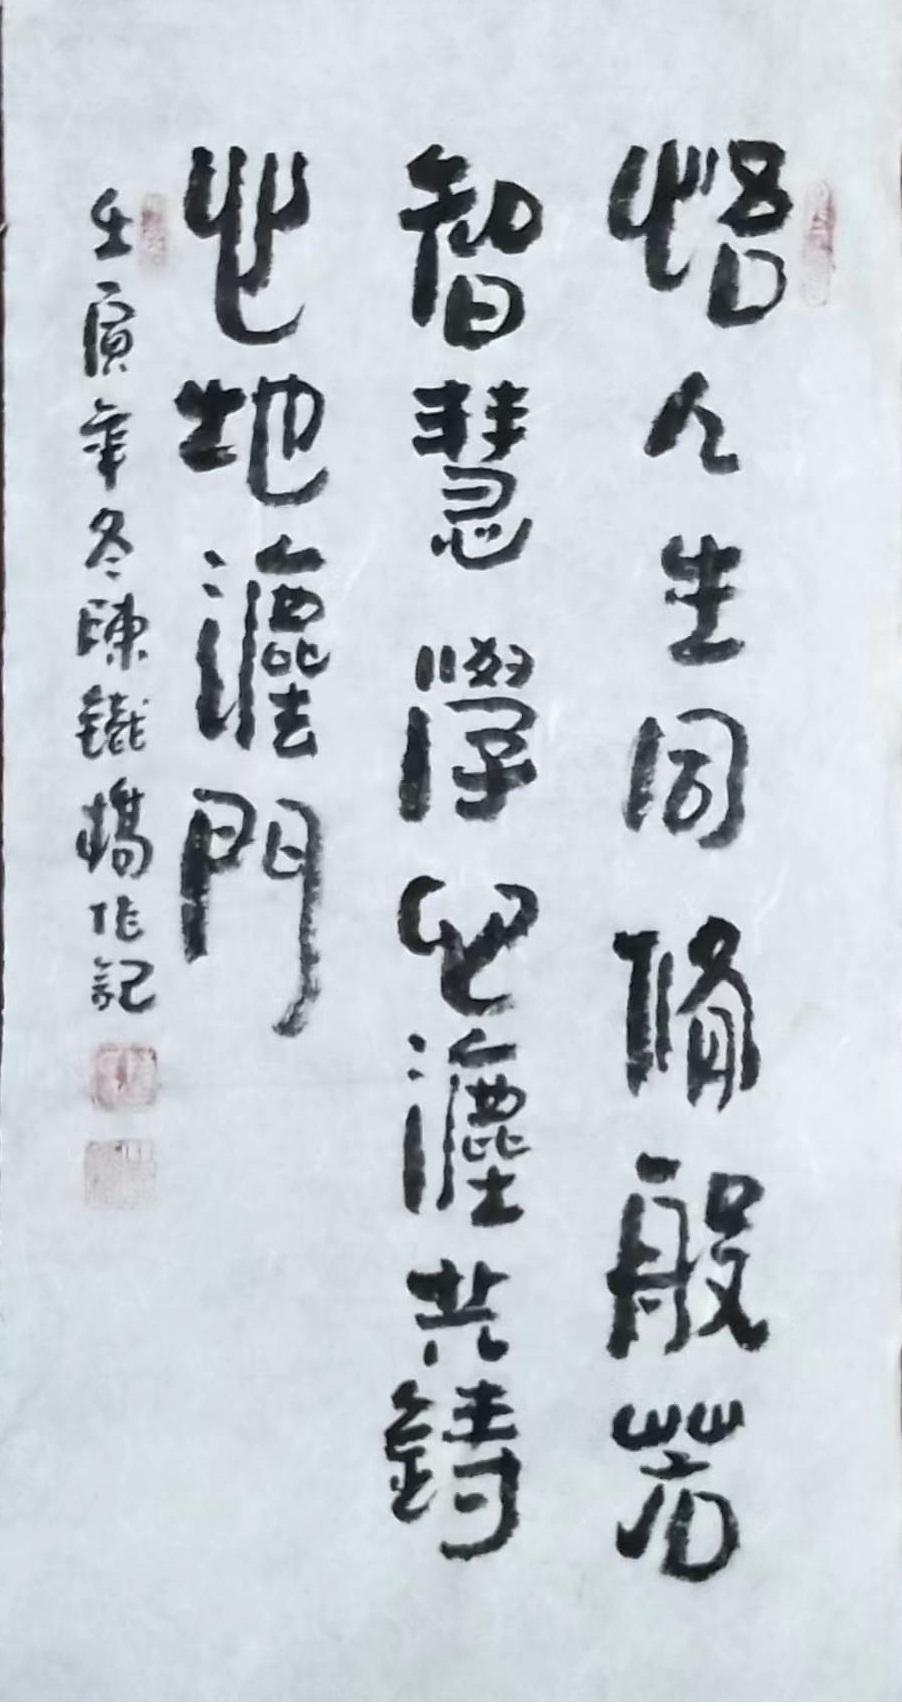 悟人生同脩般若
智慧學心灋共鑄
地灋門
壬寅年冬陳鐵橋作記